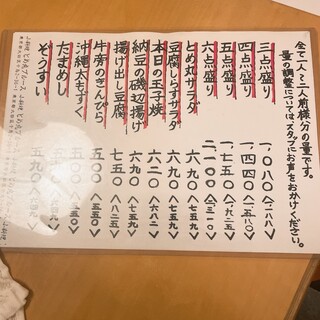 全て一人〜二人前様分の量です。
量の調整については、スタッフにお声をおかけください。
三点盛り 一、〇八〇〈一、一八八〉
四点盛り 一、四四〇〈一、五八四〉
五点盛り 一、七五〇〈一、九二五〉
六点盛り 二、一〇〇〈二、三一〇〉
とめ丸サラダ 六九〇〈七五九〉
豆腐しらすサラダ 六九〇〈七五九〉
本日の玉子焼 六二〇〈六八二〉
納豆の磯辺揚げ 六九〇〈七五九〉
揚げ出し豆腐 七五〇〈八二五〉
牛蒡のきんぴら 五〇〇〈五五〇〉
沖縄太もずく 五〇〇〈五五〇〉
たまめし
ぞうすい 五九〇